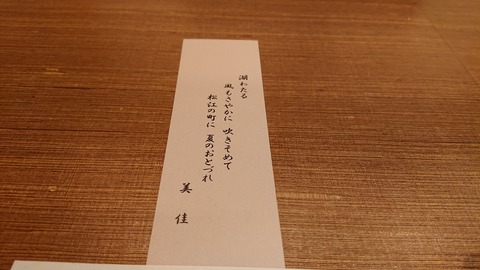 湖わたる
風もさやかに 吹きそめて
松江の町に 夏のおとづれ
美佳